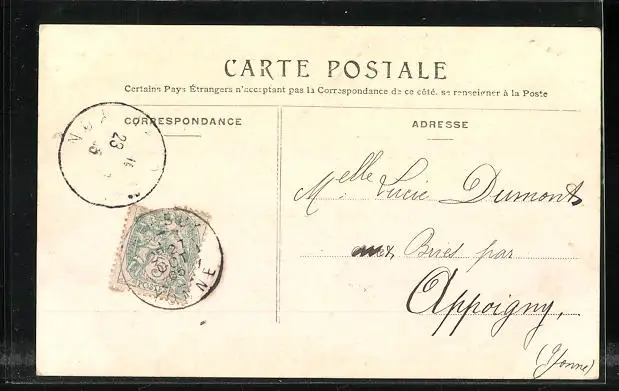 CARTE POSTALE
Certains Pays Étrangers n'acceptant pas la Correspondance de ce côté, se renseigner à la Poste
CORRESPONDANCE
ADRESSE
Melle Lucie Dumont
aux Bries par
Appoigny,
(Yonne)
23